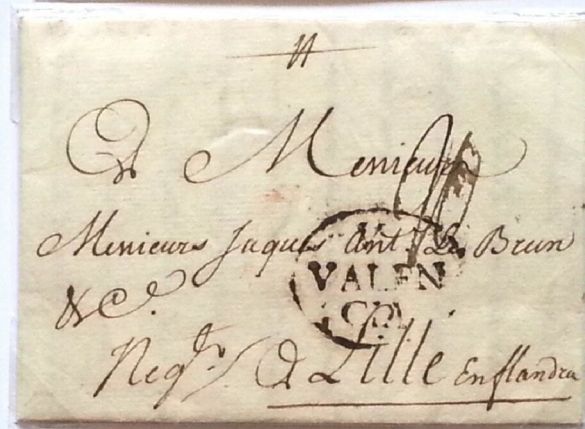 A Menieurs
Menieurs Jaques Ant. Le Brun
& C.
VALEN
CIA
Neg.ts A Lille En flandre